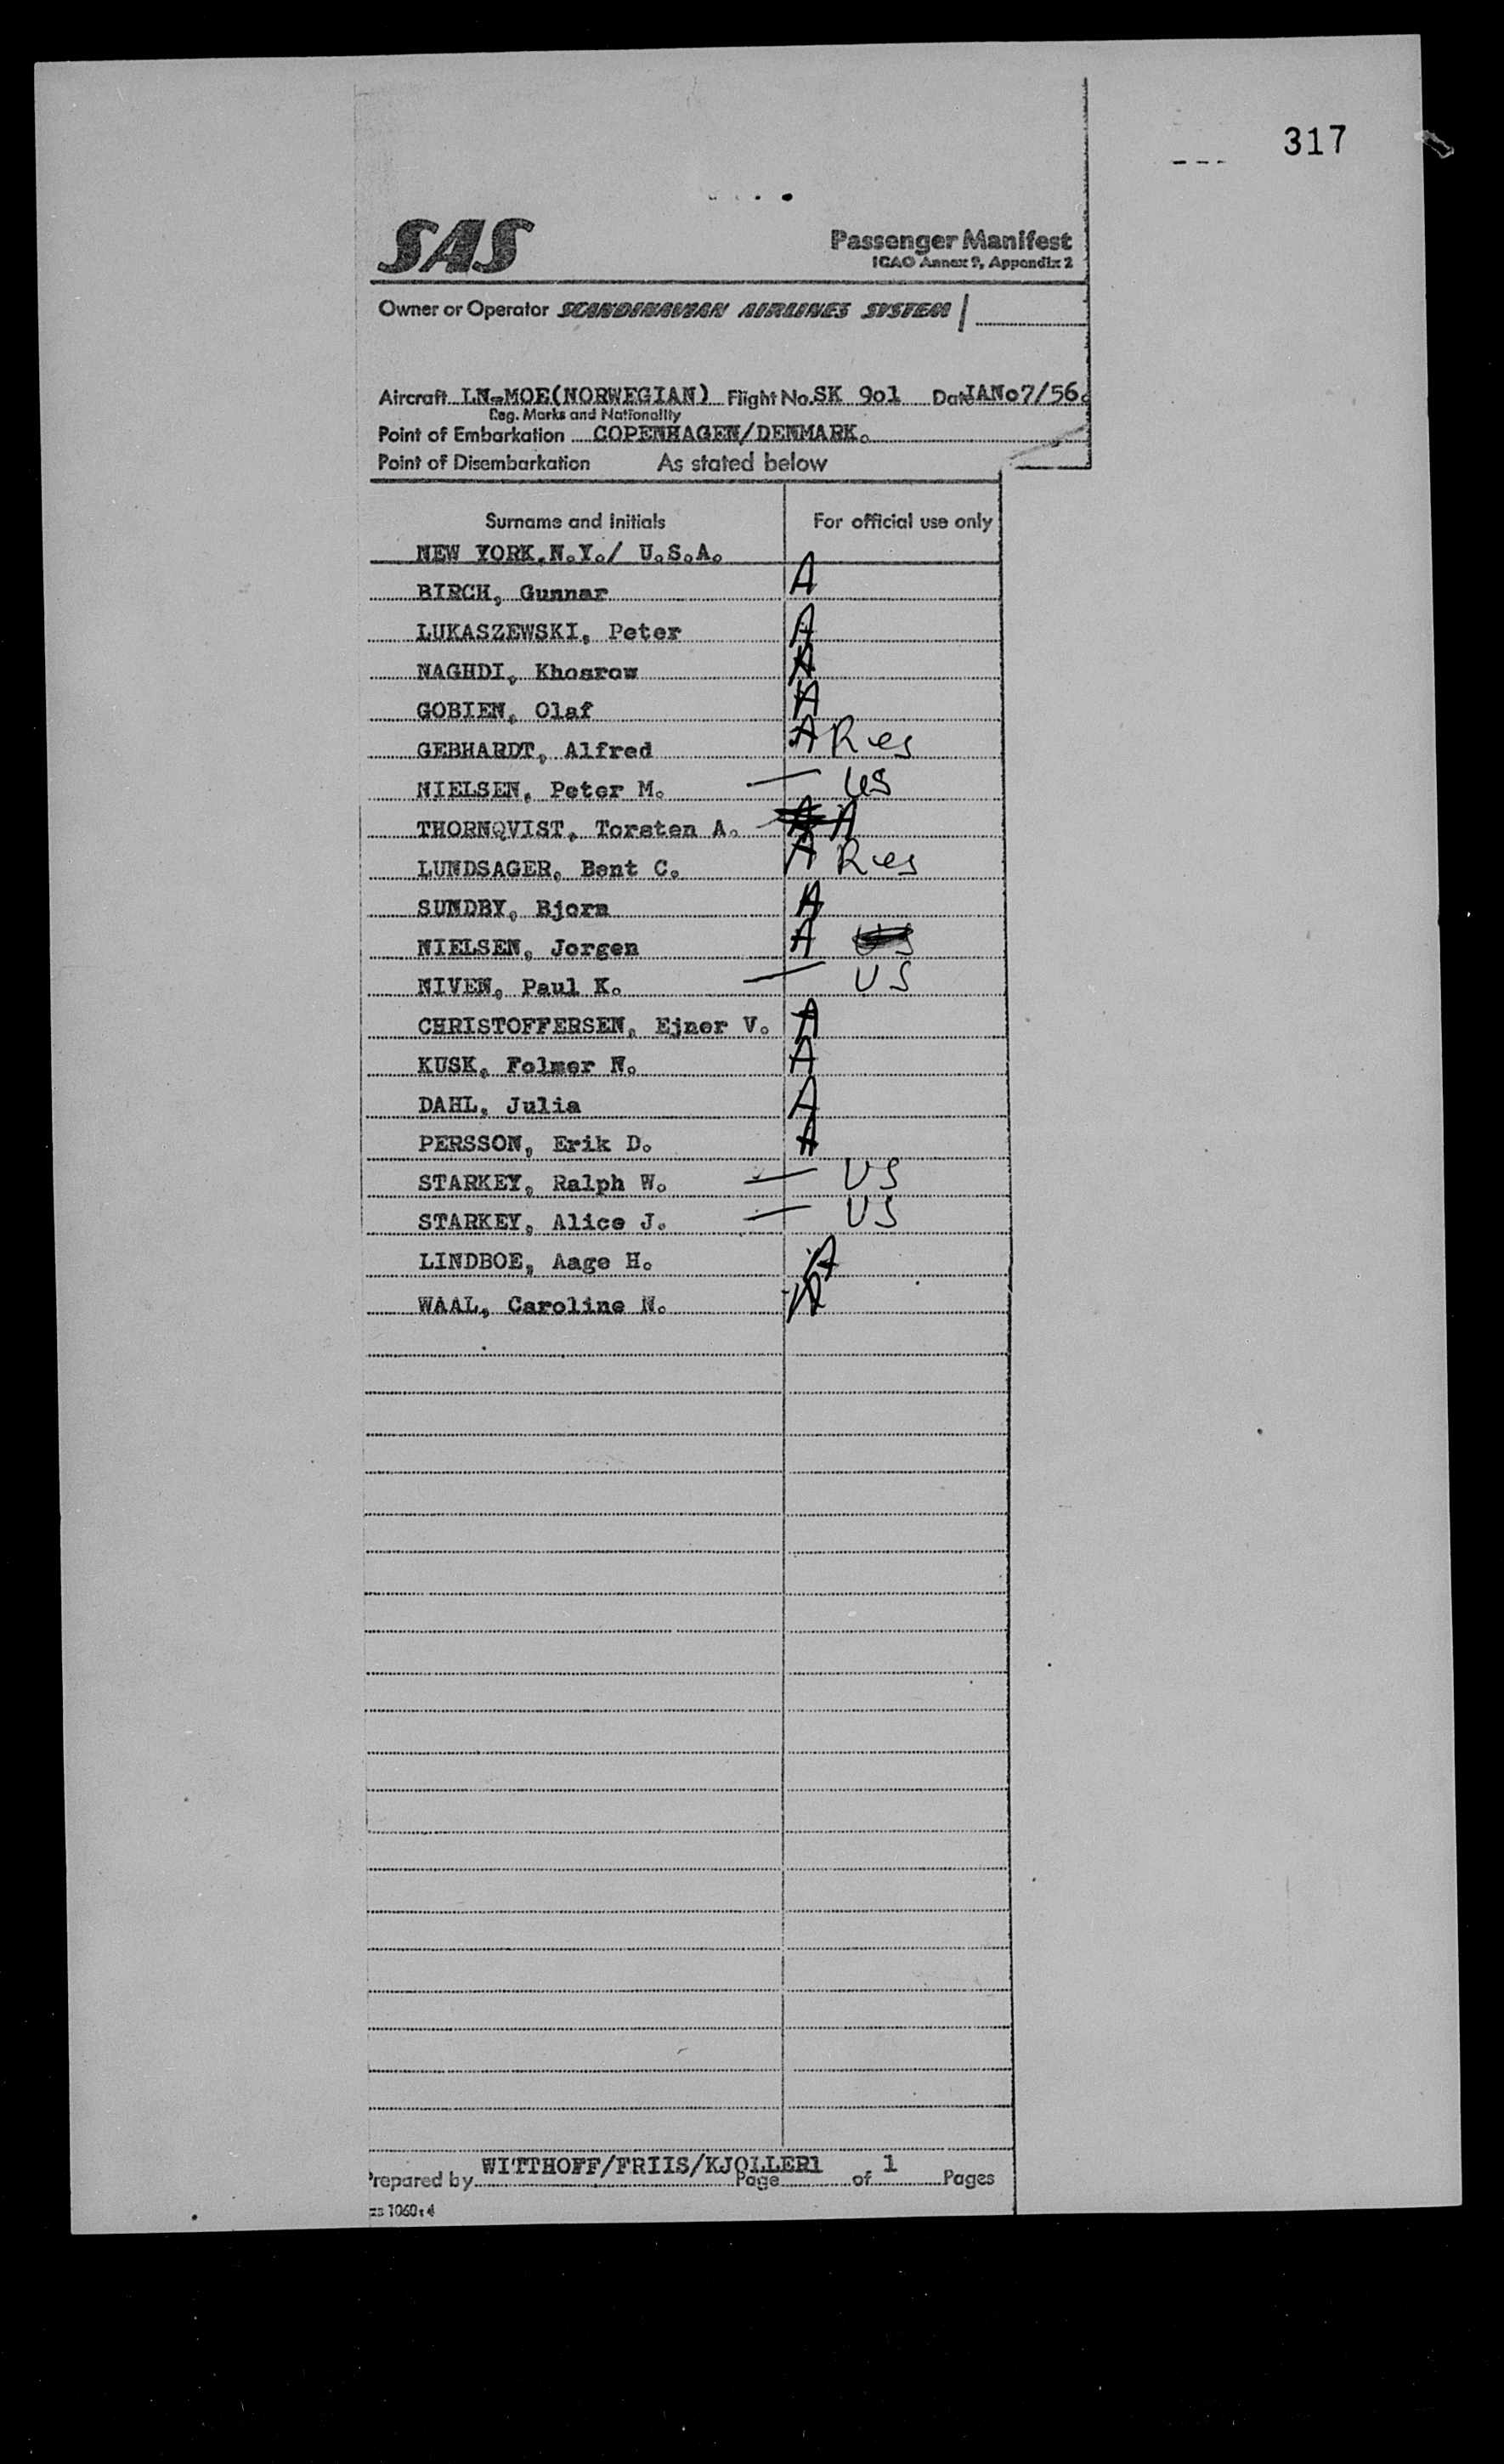 317
SAS
Passenger Manifest
ICAO Annex 9, Appendix 2
Owner or Operator SCANDINAVIAN AIRLINES SYSTEM /
Aircraft LN-MOE(NORWEGIAN) Flight No. SK 901 Date JAN 07/56.
Reg. Marks and Nationality
Point of Embarkation COPENHAGEN/DENMARK.
Point of Disembarkation As stated below
Surname and initials For official use only
NEW YORK.N.Y./ U.S.A.
BIRCH, Gunnar A
LUKASZEWSKI, Peter A
NAGHDI, Khosrow A
GOBIEN, Olaf A
GEBHARDT, Alfred A Res
NIELSEN, Peter M. — US
THORNQVIST, Torsten A. A
LUNDSAGER, Bent C. A Res
SUNDBY, Bjorn A
NIELSEN, Jorgen A US
NIVEN, Paul K. — US
CHRISTOFFERSEN, Ejner V. A
KUSK, Folmer N. A
DAHL, Julia A
PERSSON, Erik D. A
STARKEY, Ralph W. — US
STARKEY, Alice J. — US
LINDBOE, Aage H. A
WAAL, Caroline N. A
Prepared by WITTHOFF/FRIIS/KJOLLER Page 1 of 1 Pages
1060:4